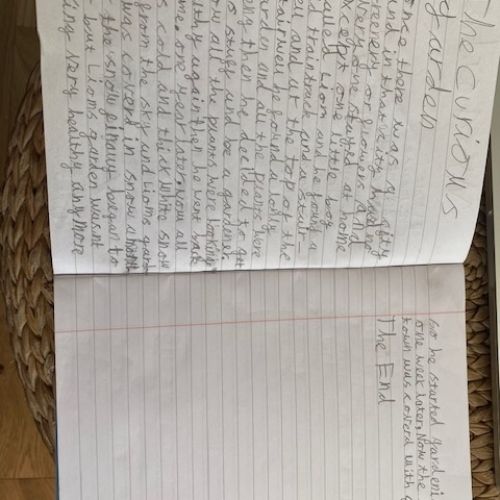 The Curious
garden
once there was a city
and in that city had no
greenery or flowers and
Everyone stayed at home
except one little boy
called Liom and he found a
old traintrack and a stair-
well and at the top of the
stairwell he found a lonly
garden and all the plants were
then he decided to get
to study and be a gardener.
Now all the plants were looking
healthy again then he went back
one year later. now all
s cold and thick white snow
from the sky and Lioms garden
was coverd in snow
the snow finally began to
but Lioms garden wasnt
king very healthy any more
so he started gardeni
one week later. Now the
town was coverd with
The End